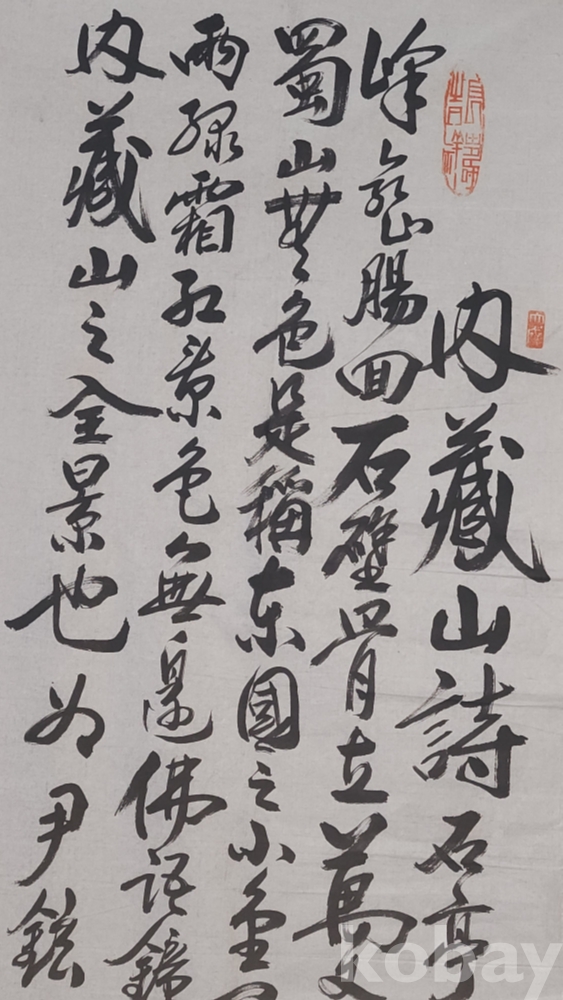 內藏山詩 石亭
峰巒腸回石壁骨立萬
蜀山無色是稱東國之小金
雨綠霜紅景色無邊佛語
內藏山之全景也 為尹鉉
kobay